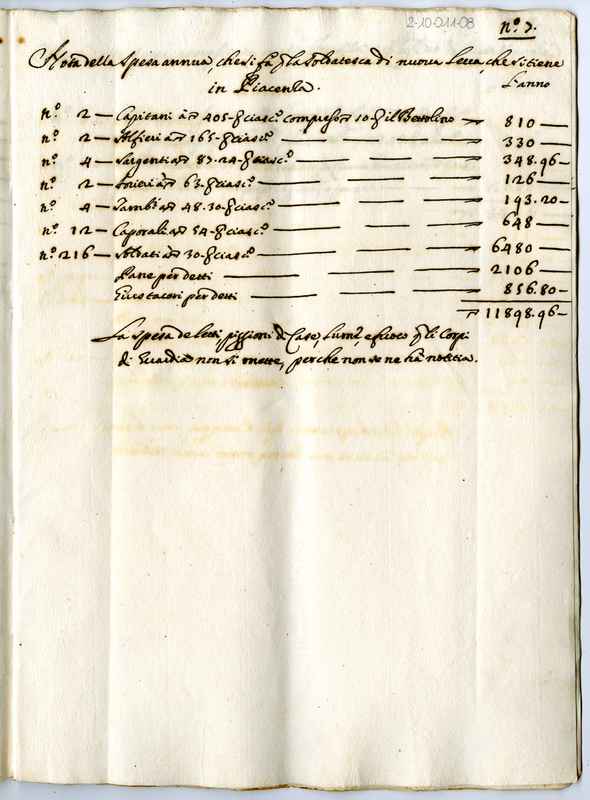 2-10-011-08
nº 7.
Nota della spesa annua, che si fà p la soldatesca di nuova Leva, che si tiene
in Piacenza.
L'anno
nº 2 — Capitani à 405 - p ciascº compreso 10 - p il Bertolino — 810 —
nº 2 — Alfieri à 165 - p ciascº — 330 —
nº 4 — Sargenti à 87.24 - p ciascº — 348.96 —
nº 2 — à 63 - p ciascº — 126 —
nº 4 — Tambⁱ à 48.30 - p ciascº — 193.20 —
nº 12 — Caporali à 54 - p ciascº — 648 —
nº 216 — Soldati à 30 - p ciascº — 6480 —
Pane per detti — 2106 —
per detti — 856.80 —
11898.96 —
La spesa de letti, piggioni di Case, Lumi, e fuoco p li Corpi
di Guardia non si mette, perche non se ne hà notitia.